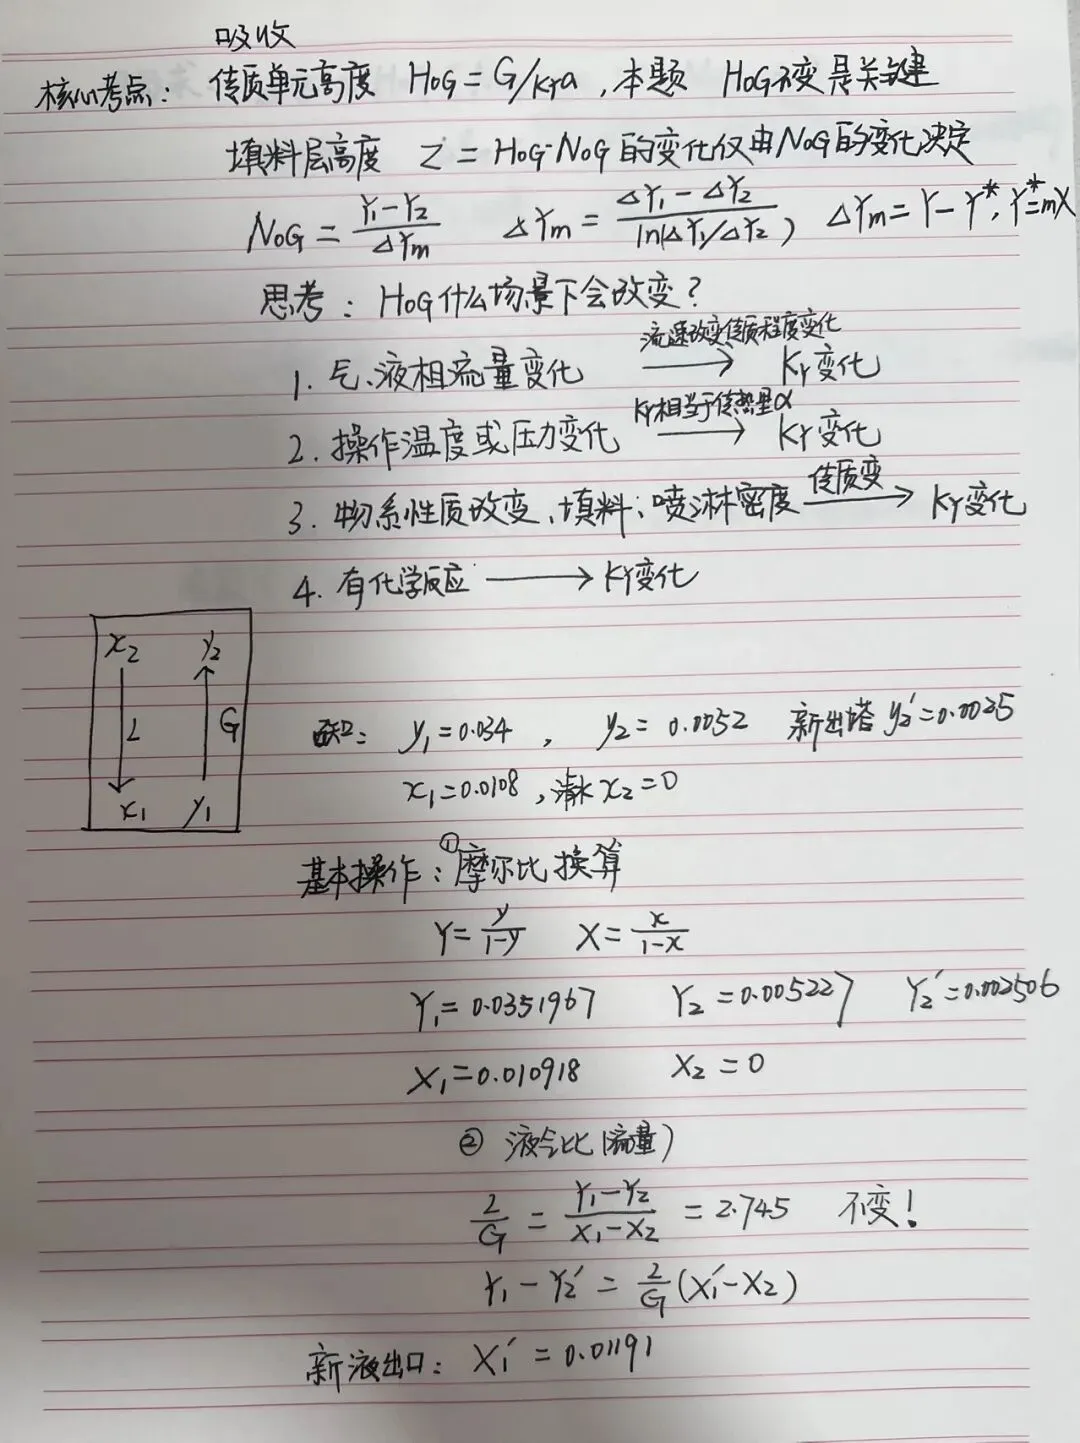 吸收
核心考点: 传质单元高度 HoG=G/Kya,本题 HoG不变是关键
填料层高度 Z=HoG·NoG的变化仅由NoG的变化决定
NoG = (Y₁-Y₂)/ΔYm ΔYm = (ΔY₁-ΔY₂)/ln(ΔY₁/ΔY₂) ΔYm=Y-Y*, Y*=mX
思考: HoG什么场景下会改变?
流速改变传质程度变化
1. 气、液相流量变化 → Ky变化
Ky相当于传热里α
2. 操作温度或压力变化 → Ky变化
传质变
3. 物系性质改变、填料、喷淋密度 → Ky变化
4. 有化学反应 → Ky变化
x₂ y₂
L G
x₁ y₁
已知: y₁=0.034, y₂=0.0052 新出塔 y₂'=0.0025
x₁=0.0108,清水 x₂=0
基本操作: ①摩尔比换算
Y=y/(1-y) X=x/(1-x)
Y₁=0.0351967 Y₂=0.005227 Y₂'=0.002506
X₁=0.010918 X₂=0
② 液气比(流量)
L/G = (Y₁-Y₂)/(X₁-X₂) = 2.745 不变!
Y₁-Y₂' = L/G (X₁'-X₂)
新液出口: X₁'=0.01191